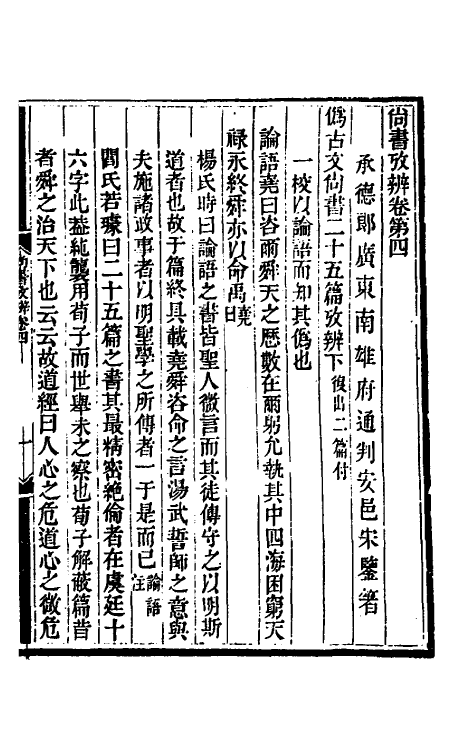 尙書攷辨卷第四
承德郎廣東南雄府通判安邑宋鑒著
僞古文尙書二十五篇攷辨下後出二篇付
一校以論語而知其僞也
論語堯曰咨爾舜天之歷數在爾躬允執其中四海困窮天
祿永終舜亦以命禹堯曰
楊氏時曰論語之書皆聖人微言而其徒傳守之以明斯
道者也故于篇終具載堯舜咨命之言湯武誓師之意與
夫施諸政事者以明聖學之所傳者一于是而已論語註
閻氏若璩曰二十五篇之書其最精密絶倫者在虞廷十
六字此葢純襲用荀子而世舉未之察也荀子解蔽篇昔
者舜之治天下也云云故道經曰人心之危道心之微危
尙書攷辨卷四
一